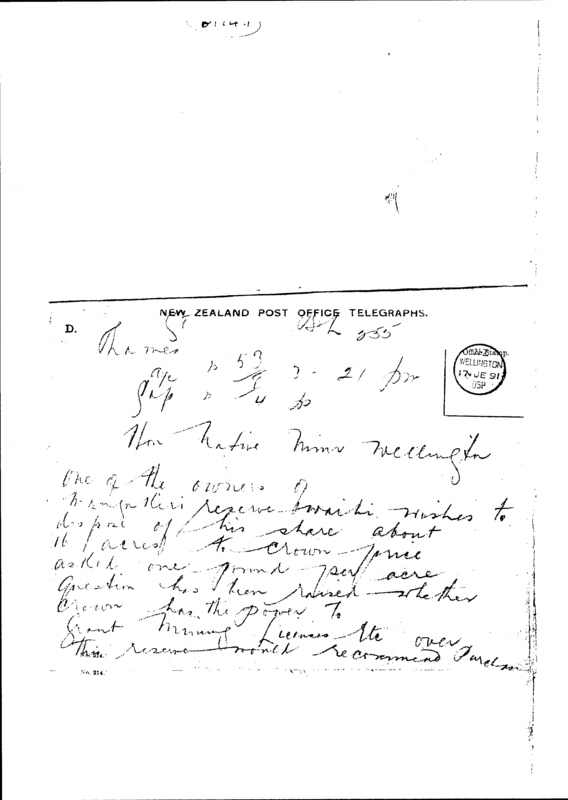 NEW ZEALAND POST OFFICE TELEGRAPHS.
D.
Thames
255
3 - 21 pm
WELLINGTON
17 JE 91
Hon Native Minr Wellington
One of the owners of
reserve Waihi wishes to
dispose of his share about
16 acres to Crown - price
asked one pound per acre
Question has been raised whether
Crown has the power to
grant Mining Licenses Etc over
this reserve would recommend Purchase
No. 214.